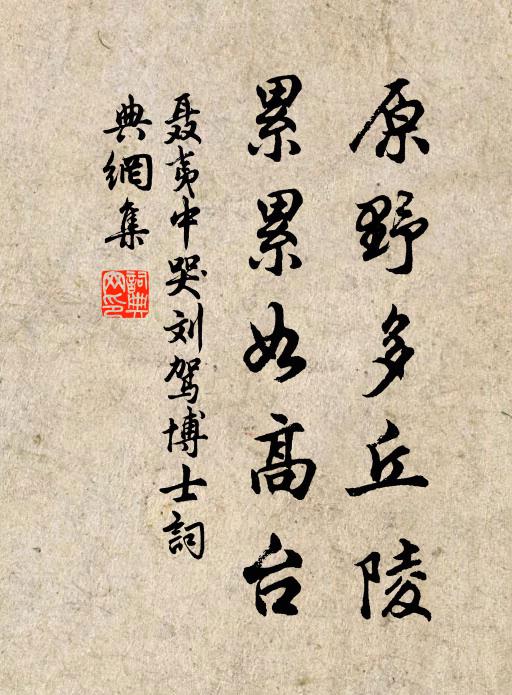 原野多丘陵
累累如高台
聂夷中哭刘驾博士詞
典網集
詞典
网印